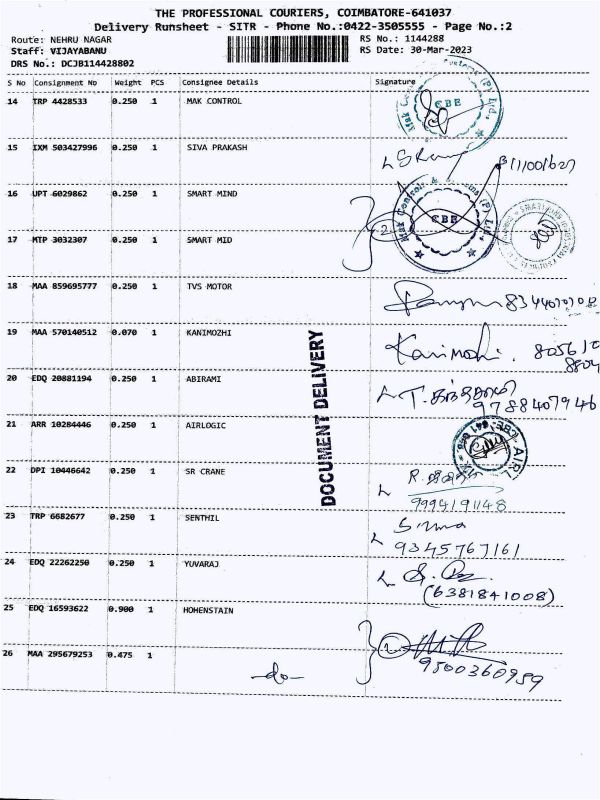 THE PROFESSIONAL COURIERS, COIMBATORE-641037
Delivery Runsheet - SITR - Phone No.:0422-3505555 - Page No.:2
Route: NEHRU NAGAR RS No.: 1144288
Staff: VIJAYABANU RS Date: 30-Mar-2023
DRS No.: DCJB114428802
S No Consignment No Weight PCS Consignee Details Signature
14 TRP 4428533 0.250 1 MAK CONTROL CBE
15 IXM 503427996 0.250 1 SIVA PRAKASH
16 UPT 6029862 0.250 1 SMART MIND
17 MTP 3032307 0.250 1 SMART MID 2 CBE
18 MAA 859695777 0.250 1 TVS MOTOR
19 MAA 570140512 0.070 1 KANIMOZHI Kanimozhi. 805610
8804
20 EDQ 20881194 0.250 1 ABIRAMI
9788407946
21 ARR 10284446 0.250 1 AIRLOGIC
22 DPI 10446642 0.250 1 SR CRANE
9994191148
23 TRP 6682677 0.250 1 SENTHIL
9345767161
24 EDQ 22262250 0.250 1 YUVARAJ
(6381841008)
25 EDQ 16593622 0.900 1 HOHENSTAIN
26 MAA 295679253 0.475 1 -do- 9500360959
DOCUMENT DELIVERY